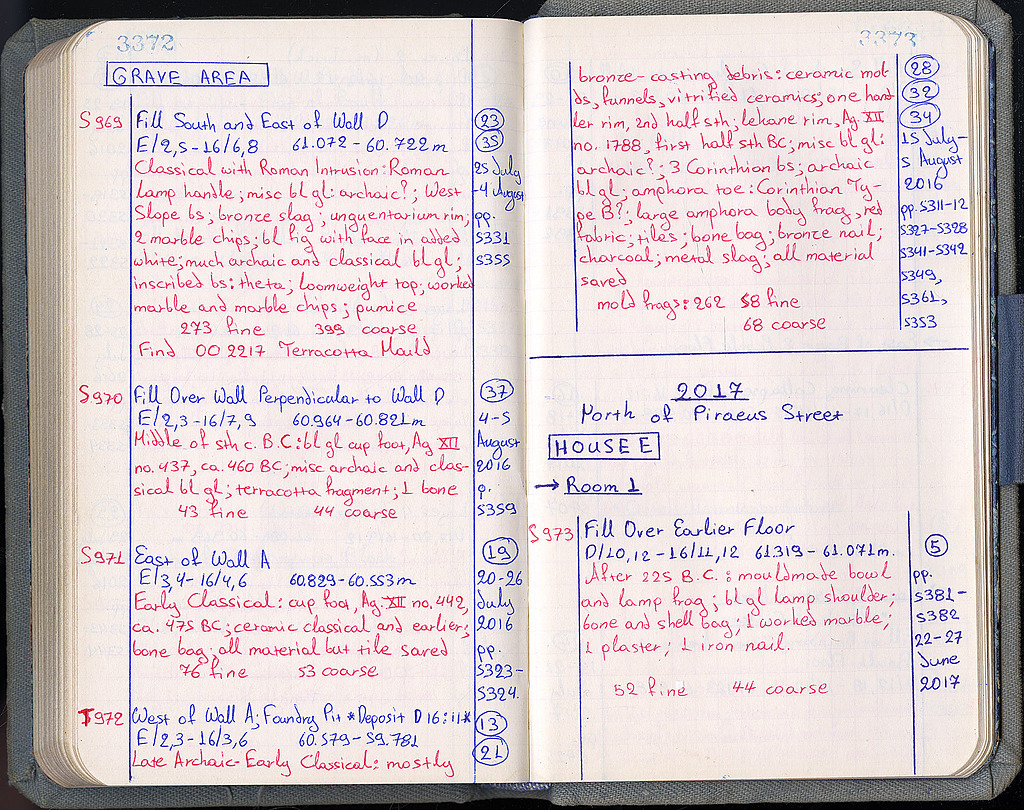 3372
GRAVE AREA
5969 Fill South and East of Wall D
E/2,5-16/6,8 61.072-60.722m
Classical with Roman Intrusion: Roman
Lamp handle; misc bl gl: archaic?; West
Slope bs; bronze slag; unguentarium rim;
2 marble chips; bl fig with face in added
white; much archaic and classical bl gl;
inscribed bs: theta; loomweight top; worked
marble and marble chips; pumice
273 fine 399 coarse
Find OO 2217 Terracotta Mould
23
35
25 July
-4 August
pp.
5331
5355
5970 Fill Over Wall Perpendicular to Wall D
E/2,3-16/7,9 60.964-60.821m
Middle of 5th c. B.C: bl gl cup foot, Ag XII
no. 437, ca. 460 BC; misc archaic and clas-
sical bl gl; terracotta fragment; 1 bone
43 fine 44 coarse
37
4-5
August
2016
p.
5359
5971 East of Wall A
E/3,4-16/4,6 60.829-60.553m
Early Classical: cup foot, Ag. XII no. 442,
ca. 475 BC; ceramic classical and earlier;
bone bag; all material but tile saved
76 fine 53 coarse
19
20-26
July
2016
pp.
5323-
5324.
5972 West of Wall A; Foundry Pit *Deposit D 16:11*
E/2,3-16/3,6 60.579-59.781
Late Archaic-Early Classical: mostly
13
21
3373
bronze-casting debris: ceramic mol-
ds, funnels, vitrified ceramics; one hand-
ler rim, 2nd half 5th; lekane rim, Ag. XII
no. 1788, first half 5th BC; misc bl gl:
archaic?; 3 Corinthian bs; archaic
bl gl; amphora toe: Corinthian Ty-
pe B?; large amphora body frag, red
fabric; tiles; bone bag; bronze nail;
charcoal; metal slag; all material
saved
mold frags: 262 58 fine
68 coarse
28
32
34
15 July-
5 August
2016
pp. 5311-12
5327-5328
5341-5342
5349,
5361,
5353
2017
North of Piraeus Street
HOUSE E
→ Room 1
5973 Fill Over Earlier Floor
D/10,12-16/11,12 61.319-61.071m.
After 225 B.C.: mouldmade bowl
and lamp frag; bl gl lamp shoulder;
bone and shell bag; 1 worked marble;
1 plaster; 1 iron nail.
52 fine 44 coarse
5
pp.
5381-
5382
22-27
June
2017